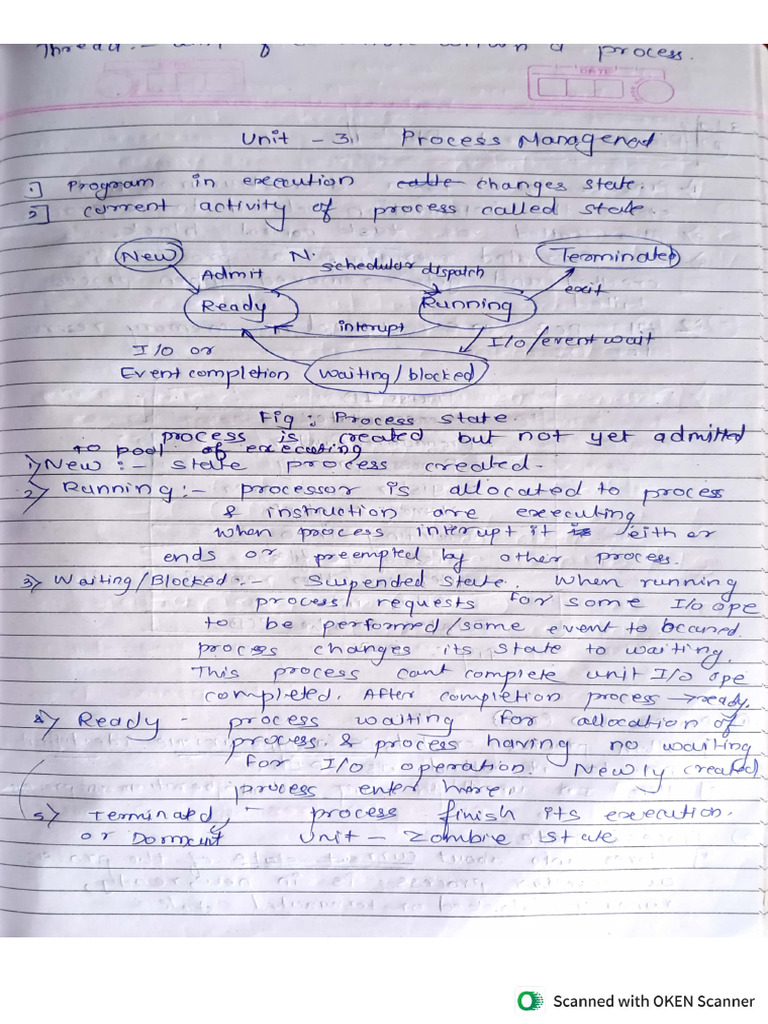 Thread :- unit of execution within a process.
DATE
Unit - 3. Process Managemend
1] Program in execcution changes state.
2] current activity of process called state.
New
N.
Terminated
Admit
schedular dispatch
exit
Ready
Running
interupt
I/o/event wait
I/o or
Event completion
waiting/blocked
Fig : Process state.
process is created but not yet admitted
to pool of executing
1) New :- state process created.
2) Running :- processor is allocated to process
& instruction are executing
when process interupt it is either
ends or preempted by other process.
3) Waiting/Blocked :- Suspended state. When running
process requests for some I/o ope
to be performed/some event to occured.
process changes its state to waiting.
This process cant complete unit I/o ope
completed. After completion process → ready.
4) Ready - process waiting for allocation of
process. & process having no waiting
for I/o operation. Newly created
process enter here
5) Terminated, - process finish its execution.
or Dormant Unit - Zombie state
Scanned with OKEN Scanner